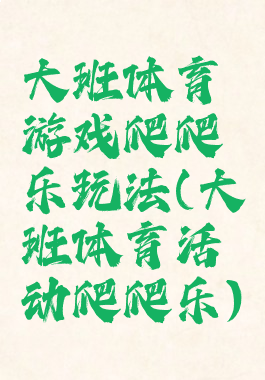 大班体育
游戏爬爬
乐玩法(大
班体育活
动爬爬乐)